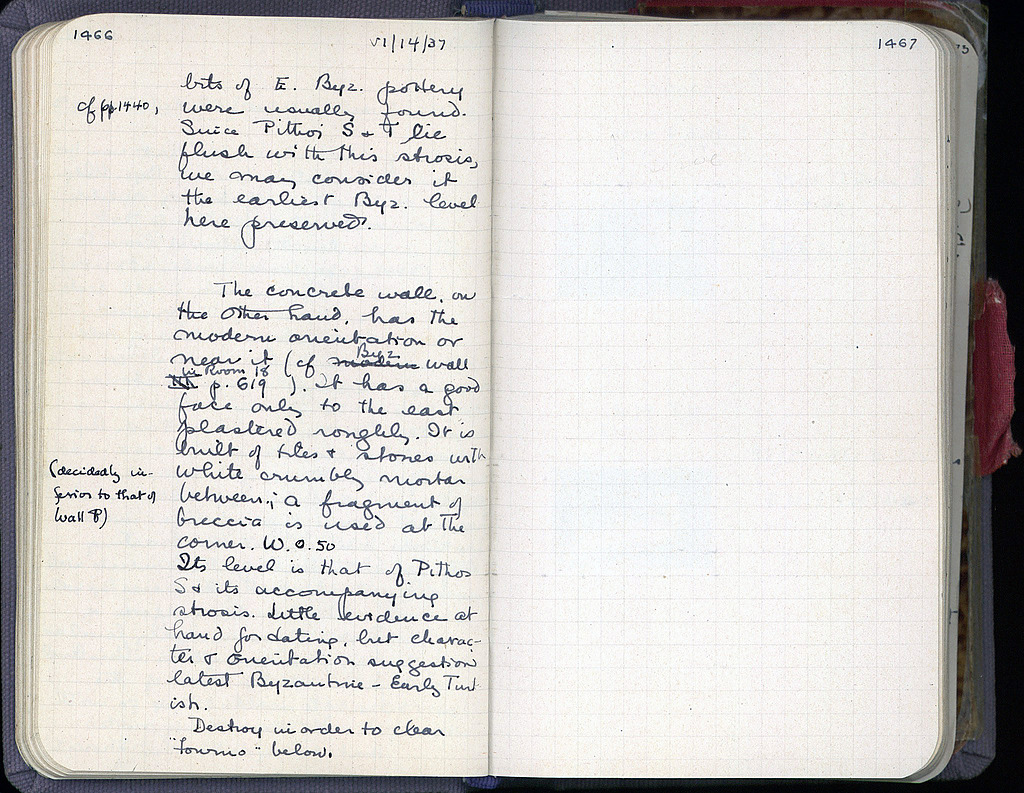 1466
VI/14/37
1467
bits of E. Byz. pottery
cf pp. 1440, were usually found.
Since Pithoi S & T lie
flush with this strosis,
we may consider it
the earliest Byz. level
here preserved.
The concrete wall, on
the other hand, has the
modern orientation or
near it (cf modern Byz wall
in Room 18
p. 619 ). It has a good
face only to the east
plastered roughly. It is
built of tiles & stones with
(decidedly in-
ferior to that of
Wall P)
white crumbly mortar
between; a fragment of
breccia is used at the
corner. W. 0.50
Its level is that of Pithos
S & its accompanying
strosis. Little evidence at
hand for dating, but charac-
ter & orientation suggestion
latest Byzantine - Early Turk
ish.
Destroy in order to clear
"fourno" below.